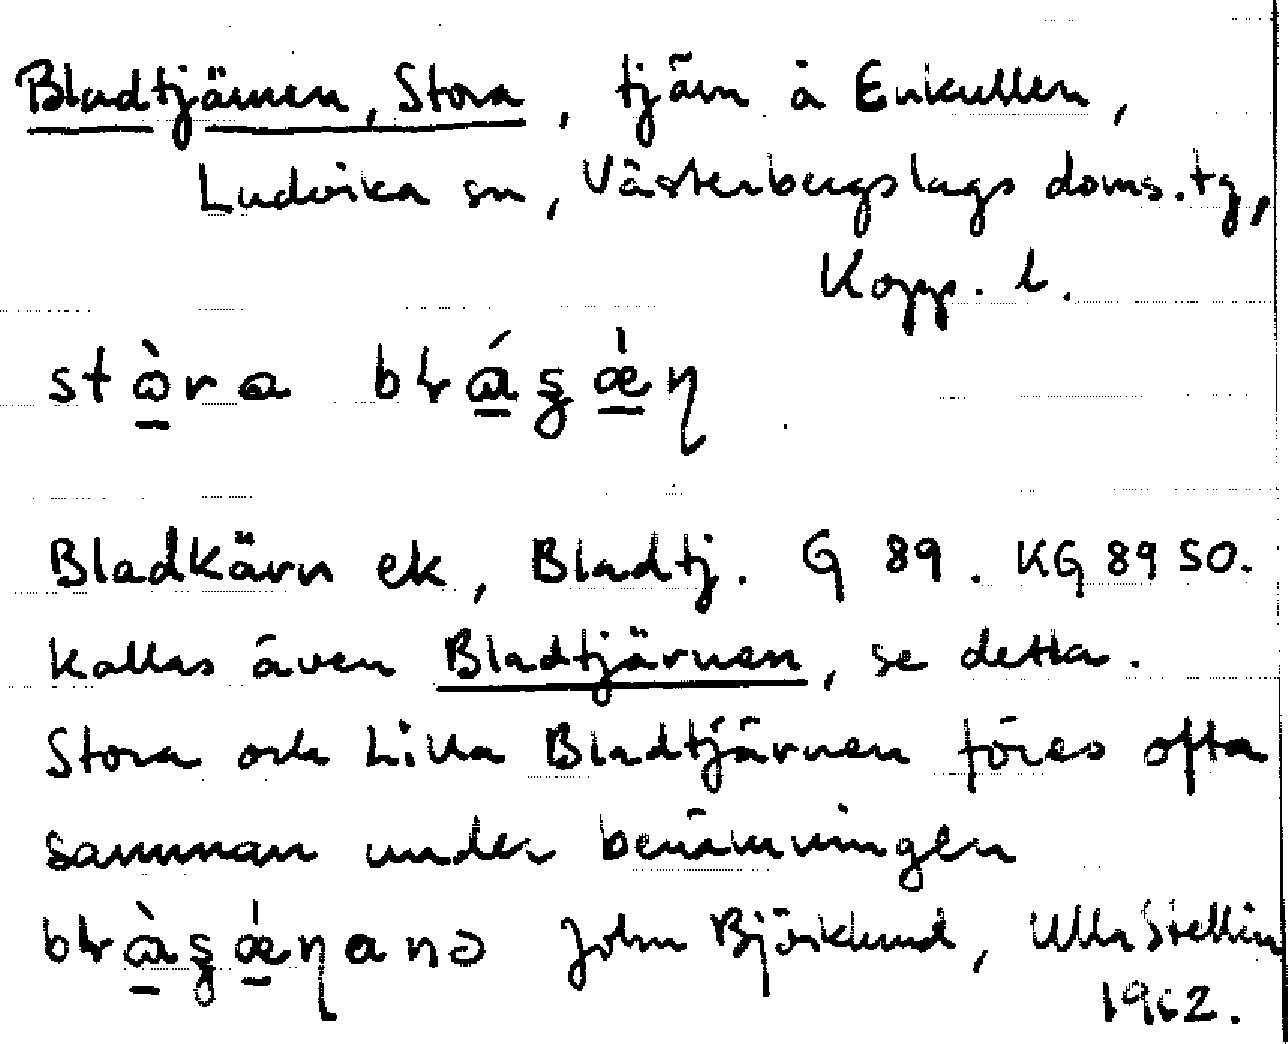 Bladtjärnen, Stora, tjärn å Enkullen,
Ludvika sn, Västerbergslags doms.tg,
Kopp. l.
stò̱ra bɫá̱ʂæ̱̍ɳ
Bladkärn ek, Bladtj. G 89. KG 89 SO.
Kallas även Bladtjärnen, se detta.
Stora och Lilla Bladtjärnen föres ofta
samman under benämningen
bɫà̱ʂæ̱̍ɳanə John Björklund, Ulla Stellin
1962.